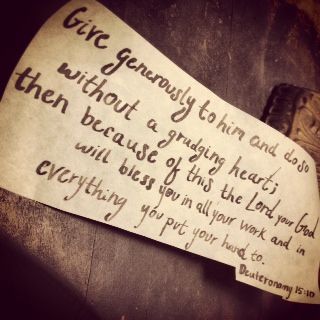 Give generously to him and do so
without a grudging heart;
then because of this the Lord your God
will bless you in all your work and in
everything you put your hand to.
Deuteronomy 15:10